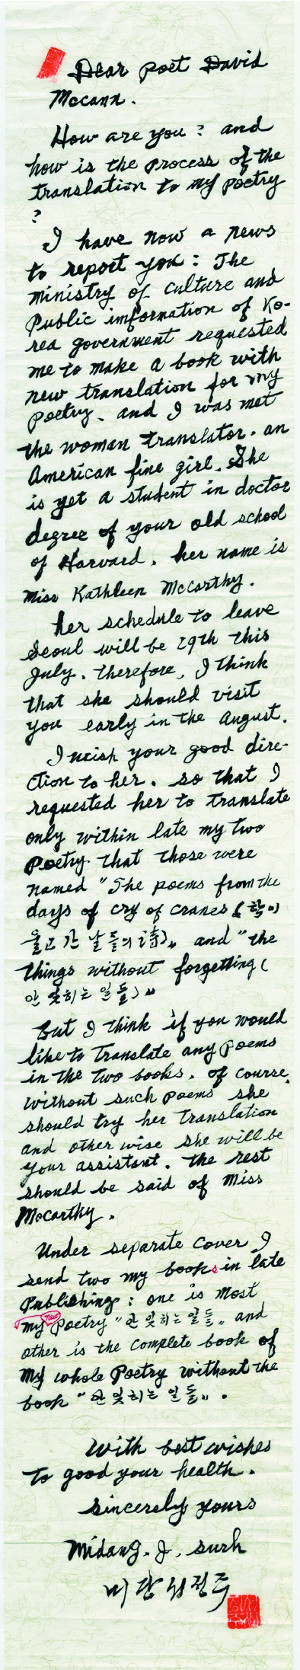 Dear poet David
Mccann.
How are you? and
how is the process of the
translation to my poetry
?
I have now a news
to report you: The
ministry of culture and
Public information of Ko-
rea government requested
me to make a book with
new translation for my
poetry. and I was met
the woman translator. an
American fine girl. She
is yet a student in doctor
degree of your old school
of Harvard. her name is
Miss Kathleen McCarthy.
her schedule to leave
Seoul will be 29th this
July. therefore, I think
that she should visit
you early in the August.
I wish your good dire-
ction to her. so that I
requested her to translate
only within late my two
Poetry that those were
named "The poems from the
days of cry of cranes (학이
울고 간 날들의 詩)" and "the
things without forgetting (
안 잊히는 일들)"
But I think if you would
like to translate any poems
in the two books. of course,
without such poems she
should try her translation
and other wise she will be
your assistant. the rest
should be said of Miss
McCarthy.
Under separate cover I
send two my books in late
Publishing: one is most
my new Poetry "안 잊히는 일들" and
other is the complete book of
my whole Poetry without the
book "안 잊히는 일들".
With best wishes
to good your health.
sincerely yours
Midang. J. surh
미당 서정주